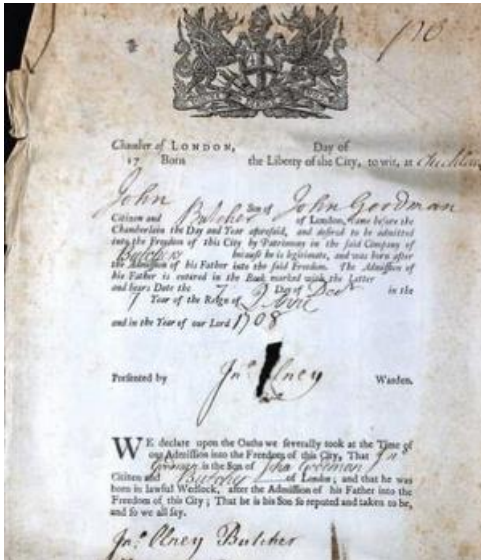 Chamber of LONDON, Day of
17 Born the Liberty of the City, to wit, at
John Son of John Goodman
Citizen and Butcher of London, came before the
Chamberlain the Day and Year aforesaid, and desired to be admitted
into the Freedom of this City by Patrimony in the said Company of
Butchers because he is legitimate, and was born after
the Admission of his Father into the said Freedom. The Admission of
his Father is entered in the Book marked with the Letter
and bears Date the 7 Day of Decr in the
7 Year of the Reign of
and in the Year of our Lord 1708
Presented by Jno. Olney Warden.
WE declare upon the Oaths we severally took at the Time of
our Admission into the Freedom of this City, That Jno
Goodman is the Son of John Goodman
Citizen and Butcher of London; and that he was
born in lawful Wedlock, after the Admission of his Father into the
Freedom of this City; That he is his Son so reputed and taken to be,
and so we all say.
Jno. Olney Butcher